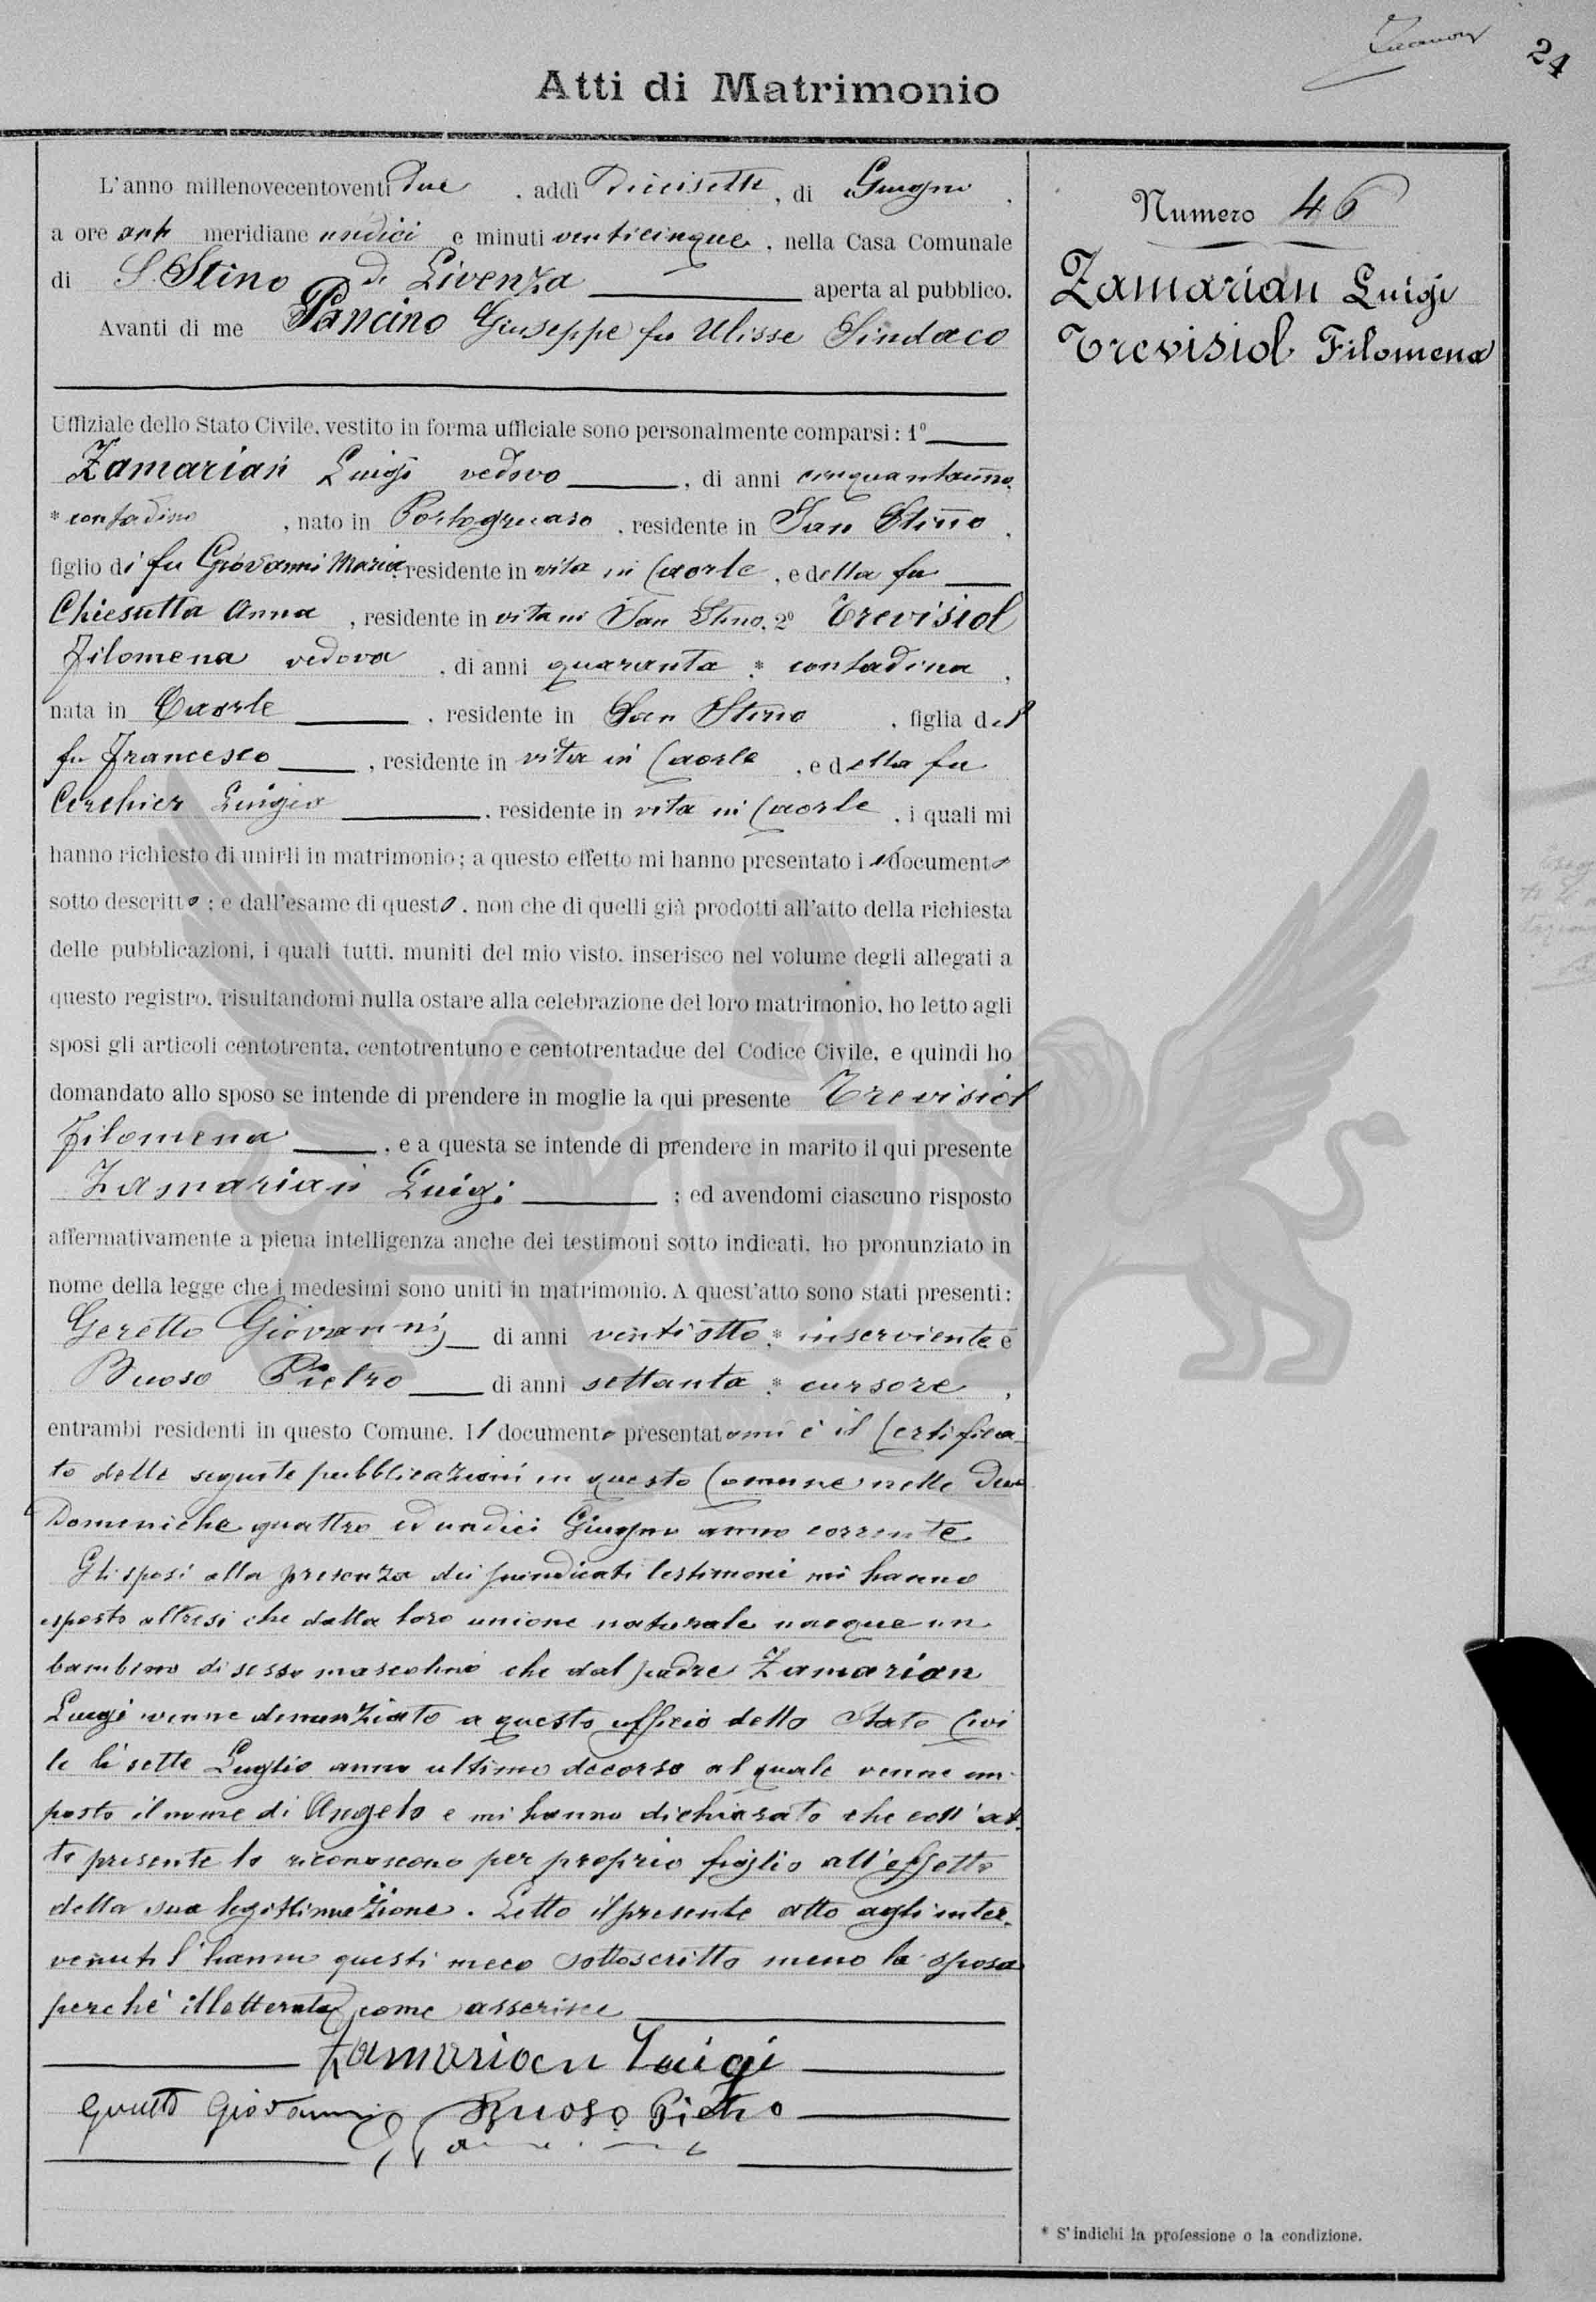 24
Atti di Matrimonio
L'anno millenovecentoventi due, addì Diecisette, di Giugno,
a ore anti meridiane undici e minuti venticinque, nella Casa Comunale
di S. Stino di Livenza aperta al pubblico.
Avanti di me Pancino Giuseppe fu Ulisse Sindaco
Uffiziale dello Stato Civile, vestito in forma ufficiale sono personalmente comparsi: 1º
Zamarian Luigi vedovo, di anni cinquantauno,
* contadino, nato in Portogruaro, residente in San Stino,
figlio di fu Giovanni Maria, residente in vita in Caorle, e della fu
Chiesutta Anna, residente in vita in San Stino, 2º Trevisiol
Filomena vedova, di anni quaranta, * contadina,
nata in Caorle, residente in San Stino, figlia del
fu Francesco, residente in vita in Caorle, e della fu
Cerchier Luigia, residente in vita in Caorle, i quali mi
hanno richiesto di unirli in matrimonio; a questo effetto mi hanno presentato il documento
sotto descritto; e dall'esame di questo, non che di quelli già prodotti all'atto della richiesta
delle pubblicazioni, i quali tutti, muniti del mio visto, inserisco nel volume degli allegati a
questo registro, risultandomi nulla ostare alla celebrazione del loro matrimonio, ho letto agli
sposi gli articoli centotrenta, centotrentuno e centotrentadue del Codice Civile, e quindi ho
domandato allo sposo se intende di prendere in moglie la qui presente Trevisiol
Filomena, e a questa se intende di prendere in marito il qui presente
Zamarian Luigi; ed avendomi ciascuno risposto
affermativamente a piena intelligenza anche dei testimoni sotto indicati, ho pronunziato in
nome della legge che i medesimi sono uniti in matrimonio. A quest'atto sono stati presenti:
Geretto Giovanni di anni ventiotto, * inserviente e
Buoso Pietro di anni settanta, * cursore,
entrambi residenti in questo Comune. Il documento presentatomi è il Certifica-
to delle seguite pubblicazioni in questo Comune nelle due
Domeniche quattro ed undici Giugno anno corrente
Gli sposi alla presenza dei suindicati testimoni mi hanno
esposto altresì che dalla loro unione naturale nacque un
bambino di sesso mascolino che dal padre Zamarian
Luigi venne denunziato a questo ufficio dello Stato Civi
le li sette Luglio anno ultimo decorso al quale venne im-
posto il nome di Angelo e mi hanno dichiarato che coll'at-
to presente lo riconoscono per proprio figlio all'effetto
della sua legittimazione. Letto il presente atto agli inter-
venuti l'hanno questi meco sottoscritto meno la sposa
perchè illetterata come asserisce
Zamarian Luigi
Geretto Giovanni Buoso Pietro
Numero 46
Zamarian Luigi
Trevisiol Filomena
* S'indichi la professione o la condizione.